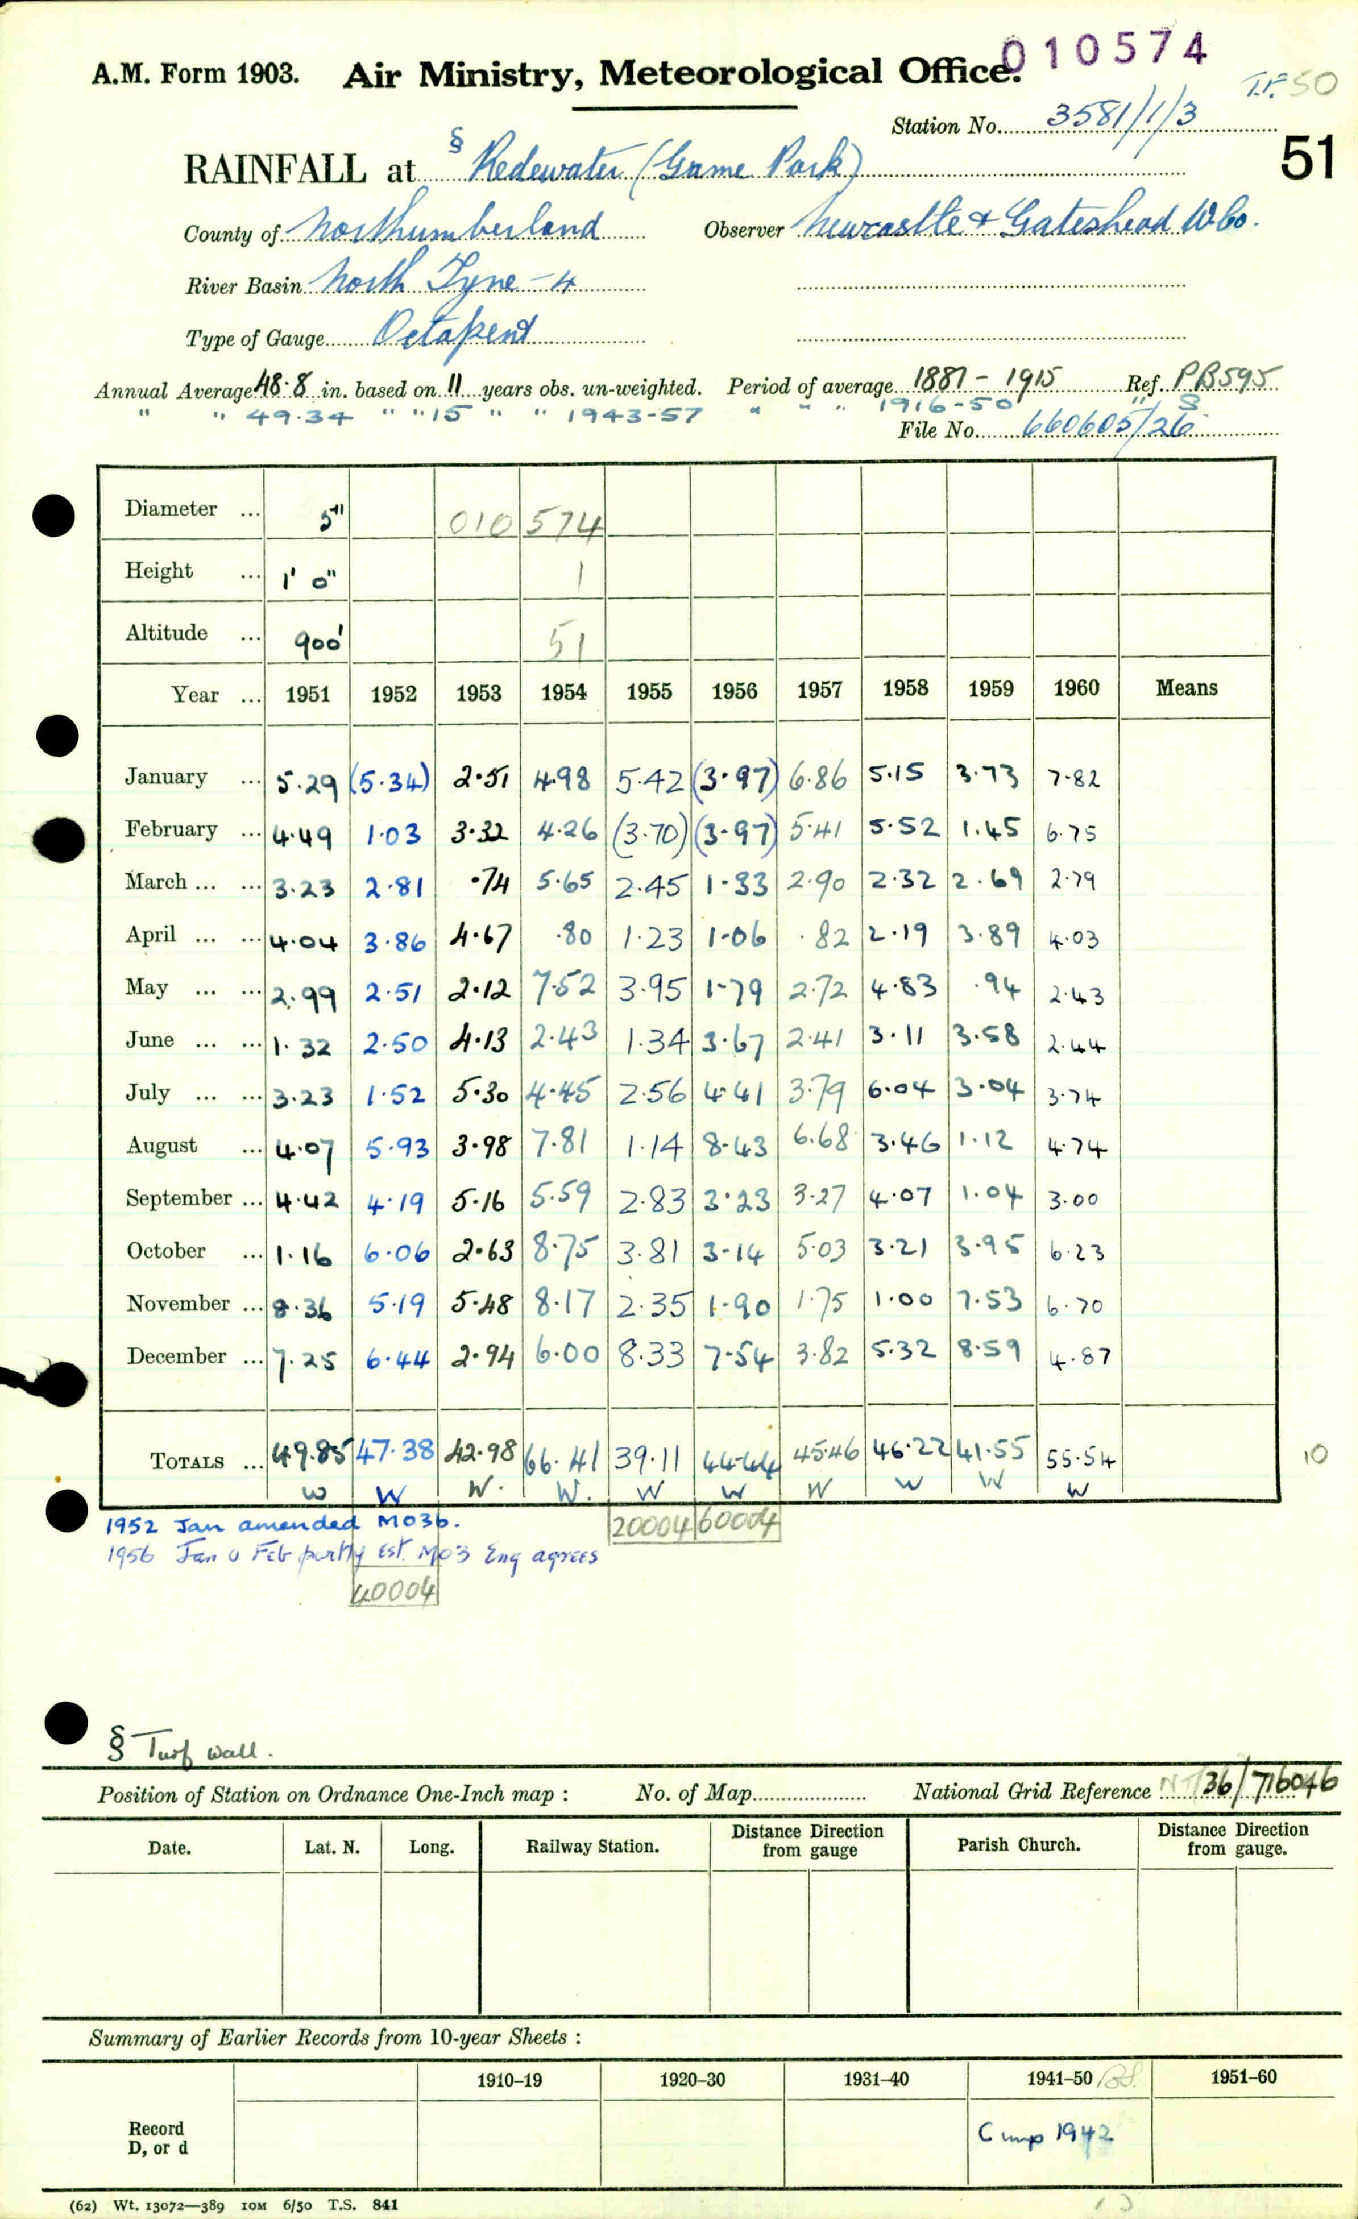 010574
A.M. Form 1903. Air Ministry, Meteorological Office.
T.F. 50
Station No. 3581/1/3
51
RAINFALL at § Redewater (Game Park)
County of Northumberland Observer Newcastle & Gateshead W.Co.
River Basin North Tyne - 4
Type of Gauge Octapent
Annual Average 48.8 in. based on 11 years obs. un-weighted. Period of average 1881 - 1915 Ref. PB595
" " 49.34 " " 15 " " 1943-57 " " " 1916-50 " S
File No. 660605/26
Diameter ... 5" 010 574
Height ... 1' 0" 1
Altitude ... 900' 51
Year ... 1951 1952 1953 1954 1955 1956 1957 1958 1959 1960 Means
January ... 5.29 (5.34) 2.51 4.98 5.42 (3.97) 6.86 5.15 3.73 7.82
February ... 4.49 1.03 3.32 4.26 (3.70) (3.97) 5.41 5.52 1.45 6.75
March ... ... 3.23 2.81 .74 5.65 2.45 1.33 2.90 2.32 2.69 2.79
April ... ... 4.04 3.86 4.67 .80 1.23 1.06 .82 2.19 3.89 4.03
May ... ... 2.99 2.51 2.12 7.52 3.95 1.79 2.72 4.83 .94 2.43
June ... ... 1.32 2.50 4.13 2.43 1.34 3.67 2.41 3.11 3.58 2.44
July ... ... 3.23 1.52 5.30 4.45 2.56 4.41 3.79 6.04 3.04 3.74
August ... 4.07 5.93 3.98 7.81 1.14 8.43 6.68 3.46 1.12 4.74
September ... 4.42 4.19 5.16 5.59 2.83 3.23 3.27 4.07 1.04 3.00
October ... 1.16 6.06 2.63 8.75 3.81 3.14 5.03 3.21 3.95 6.23
November ... 8.36 5.19 5.48 8.17 2.35 1.90 1.75 1.00 7.53 6.70
December ... 7.25 6.44 2.94 6.00 8.33 7.54 3.82 5.32 8.59 4.87
TOTALS ... 49.85 47.38 42.98 66.41 39.11 44.44 45.46 46.22 41.55 55.54 10
W W W. W. W W W W W W
1952 Jan amended M03b. 20004 60004
1956 Jan & Feb partly est. M03 Eng agrees
40004
§ Turf wall.
Position of Station on Ordnance One-Inch map : No. of Map National Grid Reference NT/36/716046
Date. Lat. N. Long. Railway Station. Distance Direction from gauge Parish Church. Distance Direction from gauge.
Summary of Earlier Records from 10-year Sheets :
1910–19 1920–30 1931–40 1941–50 1951–60
Record
D, or d
Cmp 1942
(62) Wt. 13072—389 10M 6/50 T.S. 841